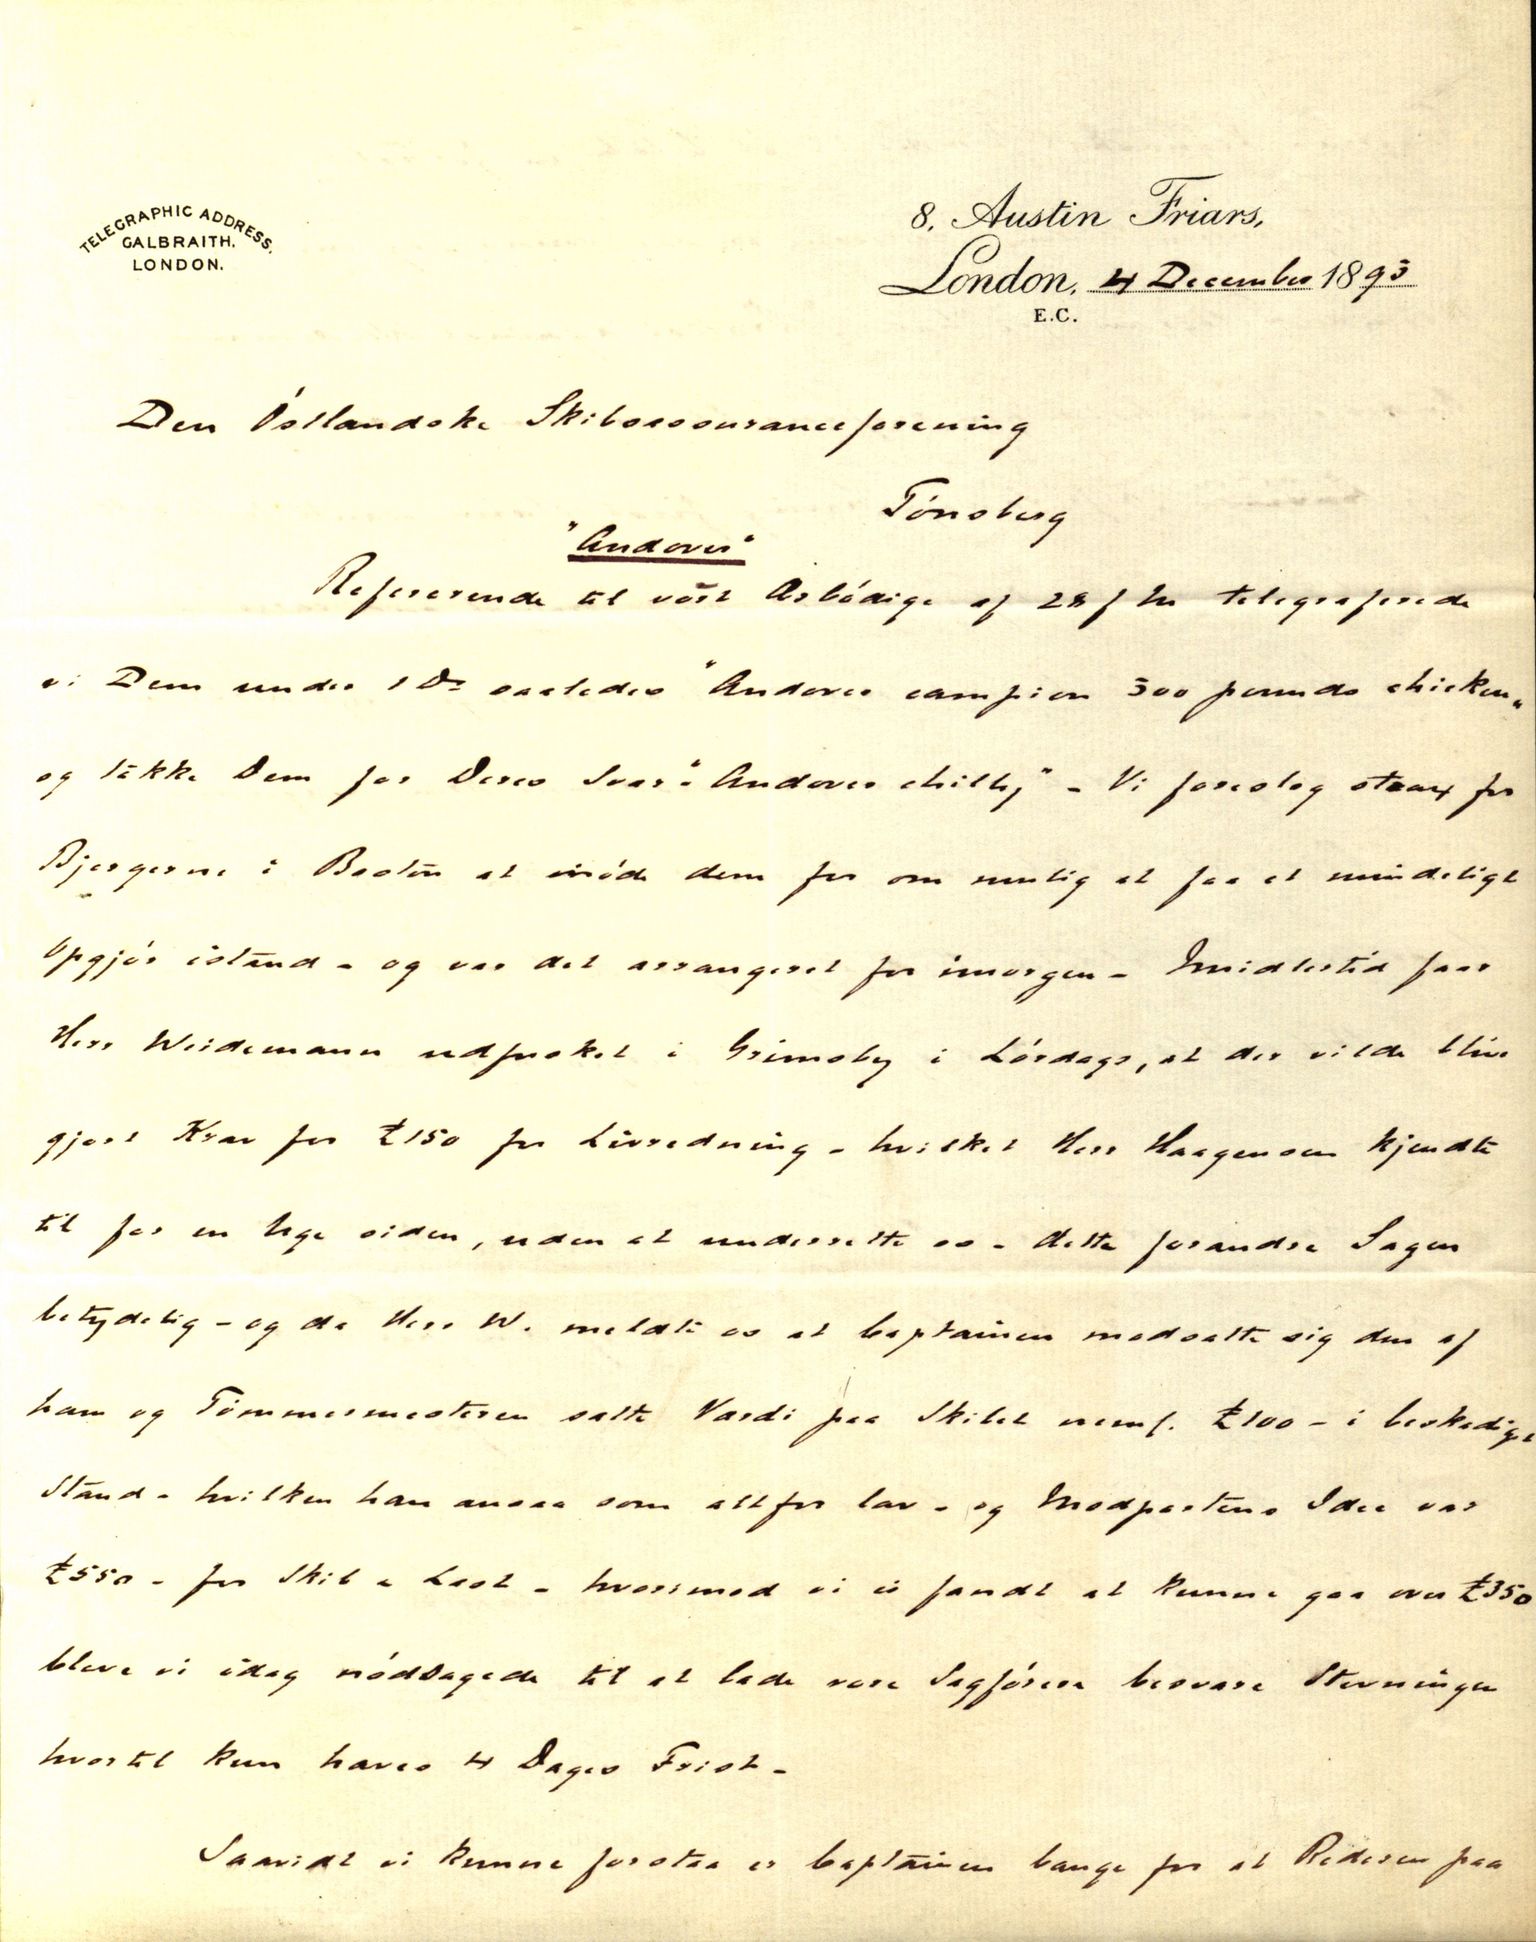 TELEGRAPHIC ADDRESS.
GALBRAITH.
LONDON.
8, Austin Friars,
London, 4 December 1893
E.C.
Den Östlandske Skibsassuranceforening
Tönsberg
"Andover"
Refererende til vort Ærbödige af 28 f M telegraferede
vi Dem under 1 Ds saaledes "Andover campion 300 pounds chicken"
og takke Dem for Deres Svar "Andover chilly" - Vi foreslog strax for
Bjergerne i Boston at möde dem for om mulig at faa et mindeligt
Opgjör istand - og var det arrangeret for imorgen - Imidlertid faar
Herr Weidemann udfusket i Grimsby i Lördags, at der vilde blive
gjort Krav for £150 for Livredning - hvilket Herr Haagensen kjendte
til for en Uge siden, uden at underrette os - dette forandre Sagen
betydelig - og da Herr W. meldte os at Captainen modsatte sig den af
ham og Tömmermesteren satte Værdi paa Skibet neml. £100 - i beskadiget
Stand - hvilken han ansaa som altfor lav - og Modpartens Idee var
£550 - for Skib & Last - hvorimod vi ei fandt at kunne gaa over £350
bleve vi idag nödsagede til at lade vore Sagförere besvare Stevningen
hvortil kun haves 4 Dages Frist -
Saavidt vi kunne forstaa er Captainen bange for at Rederen paa